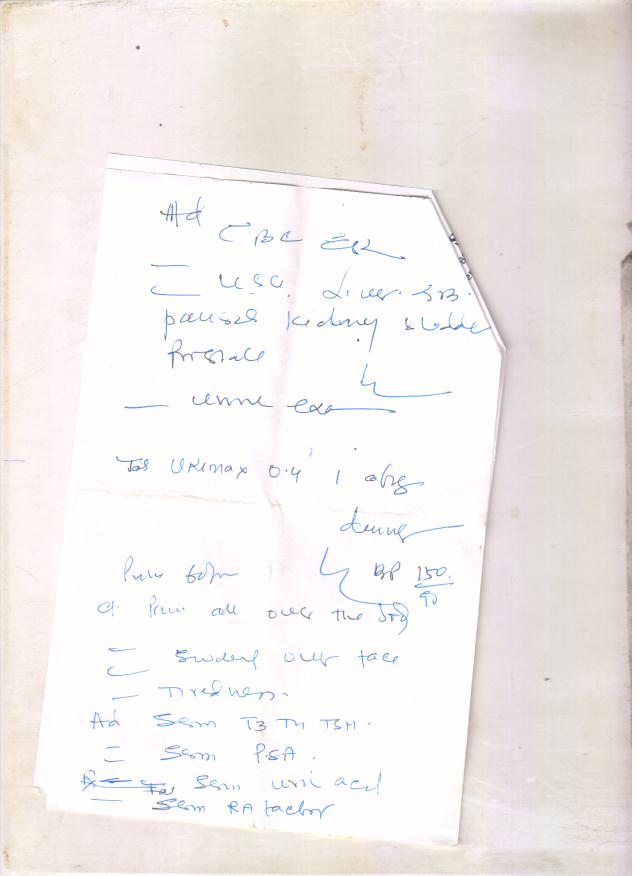 Ad
CBC ESR
U.S.G. Liver. GB.
kidney bladder
Prostate
urine exa
Tab URIMAX 0.4 1
dinner
Pulse 60/m BP 150/90
c/o Pain all over the body
over face
Tiredness.
Ad Serm T3 T4 TSH.
Serm PSA.
Serm uric acid
Serm RA factor